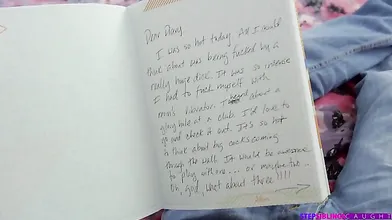 Dear Diary,
I was so hot today. All I could
think about was being fucked by a
really huge dick. It was so intense
I had to fuck myself with
moms vibrator. I heard about a
glory hole at a club. I'd love to
go and check it out. It's so hot
to think about big cocks coming
through the wall. It would be awesome
to play with one... or maybe two...
Oh, and, what about three!!!!